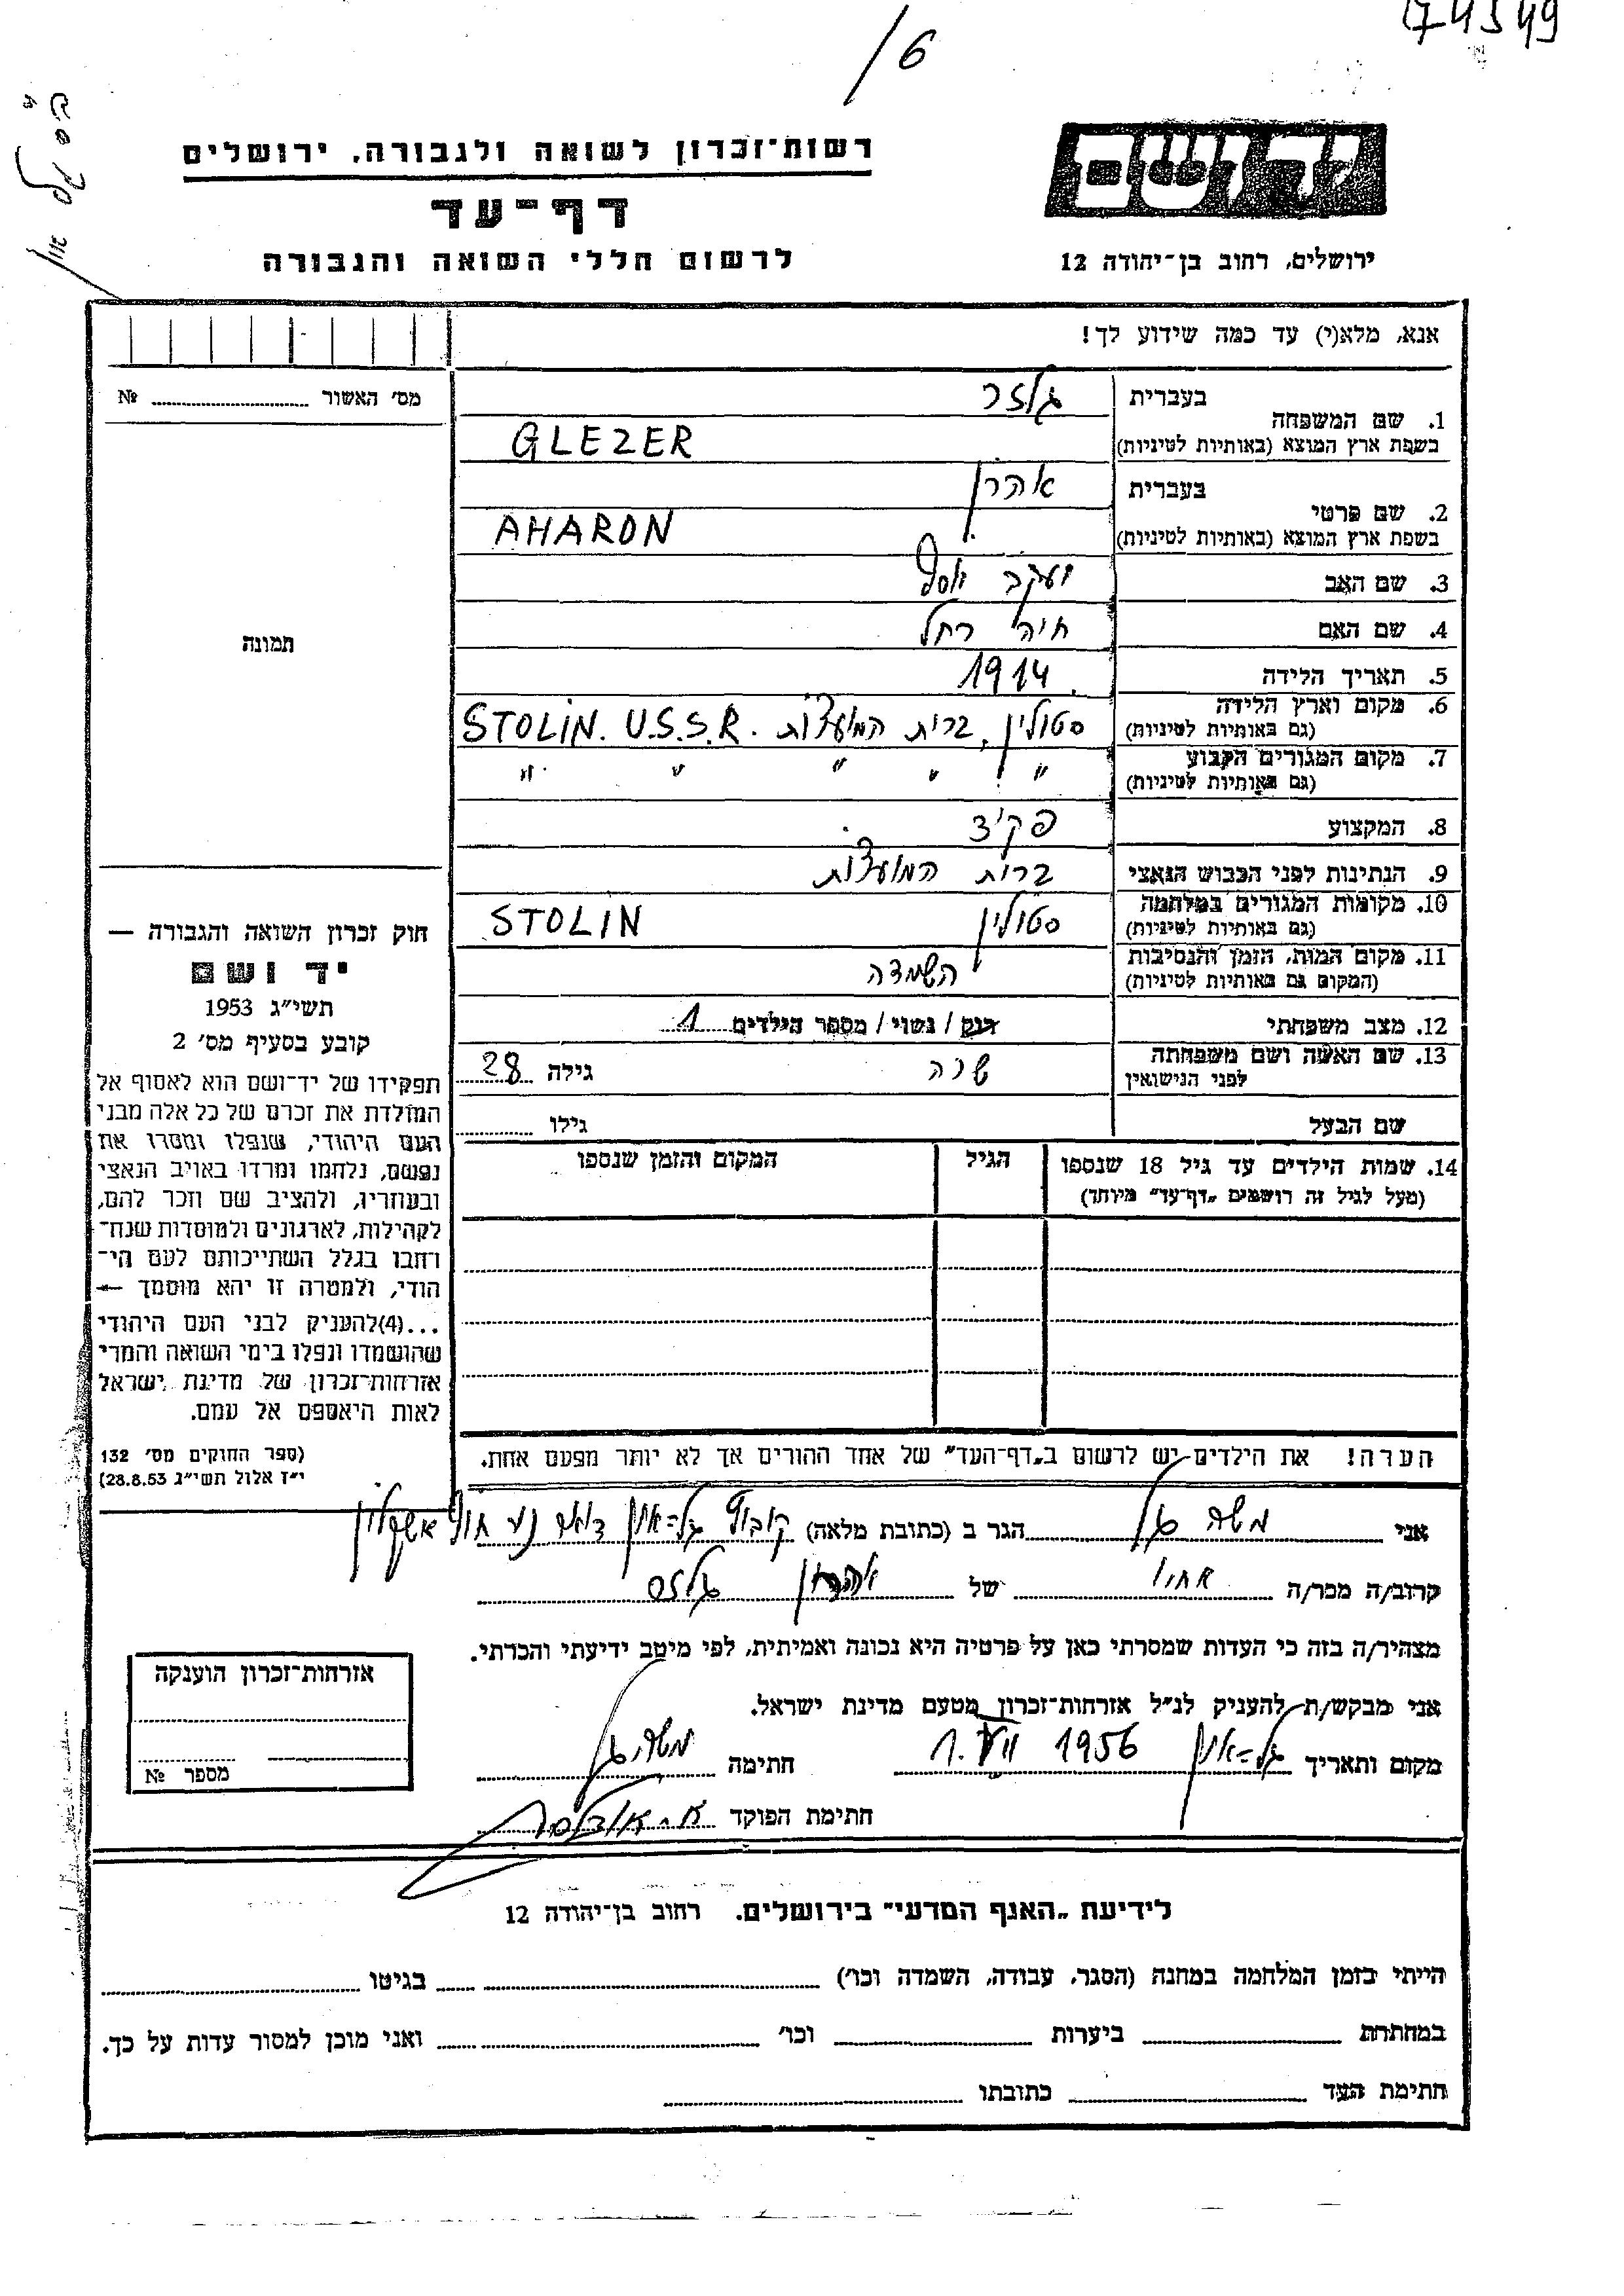 174549
/6
יד ושם
רשות־זכרון לשואה ולגבורה, ירושלים
דף־עד
לרשום חללי השואה והגבורה
ירושלים, רחוב בן־יהודה 12
אנא, מלא(י) עד כמה שידוע לך!
מס׳ האשור № 
בעברית גלזר
1. שם המשפחה
בשפת ארץ המוצא (באותיות לטיניות) GLEZER
בעברית אהרן
2. שם פרטי
בשפת ארץ המוצא (באותיות לטיניות) AHARON
3. שם האב יעקב יוסף
4. שם האם חיה רחל
5. תאריך הלידה 1914
6. מקום וארץ הלידה סטולין, ברית המועצות. STOLIN. U.S.S.R
(גם באותיות לטיניות)
7. מקום המגורים הקבוע " " " " "
(גם באותיות לטיניות)
8. המקצוע פקיד
9. הנתינות לפני הכבוש הנאצי ברית המועצות
10. מקומות המגורים במלחמה סטולין STOLIN
(גם באותיות לטיניות)
11. מקום המות, הזמן והנסיבות השמדה
(המקום גם באותיות לטיניות)
12. מצב משפחתי רוק / נשוי / מספר הילדים 1
13. שם האשה ושם משפחתה שרה גילה 28
לפני הנישואין
שם הבעל גילו
14. שמות הילדים עד גיל 18 שנספו הגיל המקום והזמן שנספו
(מעל לגיל זה רושמים „דף־עד" מיוחד)
הערה! את הילדים יש לרשום ב„דף־העד" של אחד ההורים אך לא יותר מפעם אחת.
תמונה
חוק זכרון השואה והגבורה —
יד ושם
תשי״ג 1953
קובע בסעיף מס׳ 2
תפקידו של יד־ושם הוא לאסוף אל
המולדת את זכרם של כל אלה מבני
העם היהודי, שנפלו ומסרו את
נפשם, נלחמו ומרדו באויב הנאצי
ובעוזריו, ולהציב שם וזכר להם,
לקהילות, לארגונים ולמוסדות שנח־
רחבו בגלל השתייכותם לעם הי־
הודי, ולמטרה זו יהא מוסמך —
...(4)להעניק לבני העם היהודי
שהושמדו ונפלו בימי השואה והמרי
אזרחות־זכרון של מדינת ישראל
לאות היאספם אל עמם.
(ספר החוקים מס׳ 132
י״ז אלול תשי״ג 28.8.53)
אני משה גל הגר ב (כתובת מלאה) קבוץ גל־און דאר נע חוף אשקלון
קרוב/ה מכר/ה אחיו של אהרון גלזר
מצהיר/ה בזה כי העדות שמסרתי כאן על פרטיה היא נכונה ואמיתית, לפי מיטב ידיעתי והכרתי.
אני מבקש/ת להעניק לנ״ל אזרחות־זכרון מטעם מדינת ישראל.
מקום ותאריך גל־און 1. VII 1956 חתימה משה גל
חתימת הפוקד
אזרחות־זכרון הוענקה
מספר №
לידיעת „האגף המדעי" בירושלים. רחוב בן־יהודה 12
הייתי בזמן המלחמה במחנה (הסגר, עבודה, השמדה וכו׳) בגיטו
במחתרת ביערות וכו׳ ואני מוכן למסור עדות על כך.
חתימת העד כתובתו